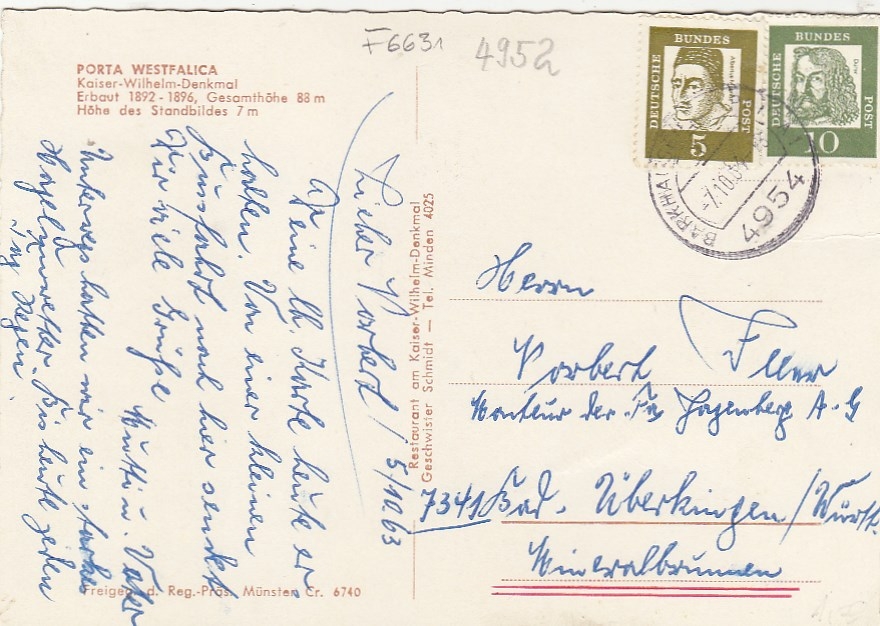 F6631
4952
PORTA WESTFALICA
Kaiser-Wilhelm-Denkmal
Erbaut 1892 - 1896, Gesamthöhe 88 m
Höhe des Standbildes 7 m
DEUTSCHE BUNDES POST
5
DEUTSCHE BUNDES POST
10
BARKHAU
-7.10.
4954
Lieber Norbert! 5/10.63
Deine lb. Karte heute er
halten. Von einer kleinen
Busfahrt nach hier sendet
Dir viele Grüße
Mutti u. Vater
Unterwegs hatten wir ein starkes
Hagelunwetter. Bis heute jeden
Tag Regen.
Restaurant am Kaiser-Wilhelm-Denkmal
Geschwister Schmidt — Tel. Minden 4025
Herrn
Norbert
Monteur der Fa Hagenberg A-G
7341 Bad. Überkingen/Württ.
Mineralbrunnen
Freigeg. d. Reg.-Präs. Münster Cr. 6740